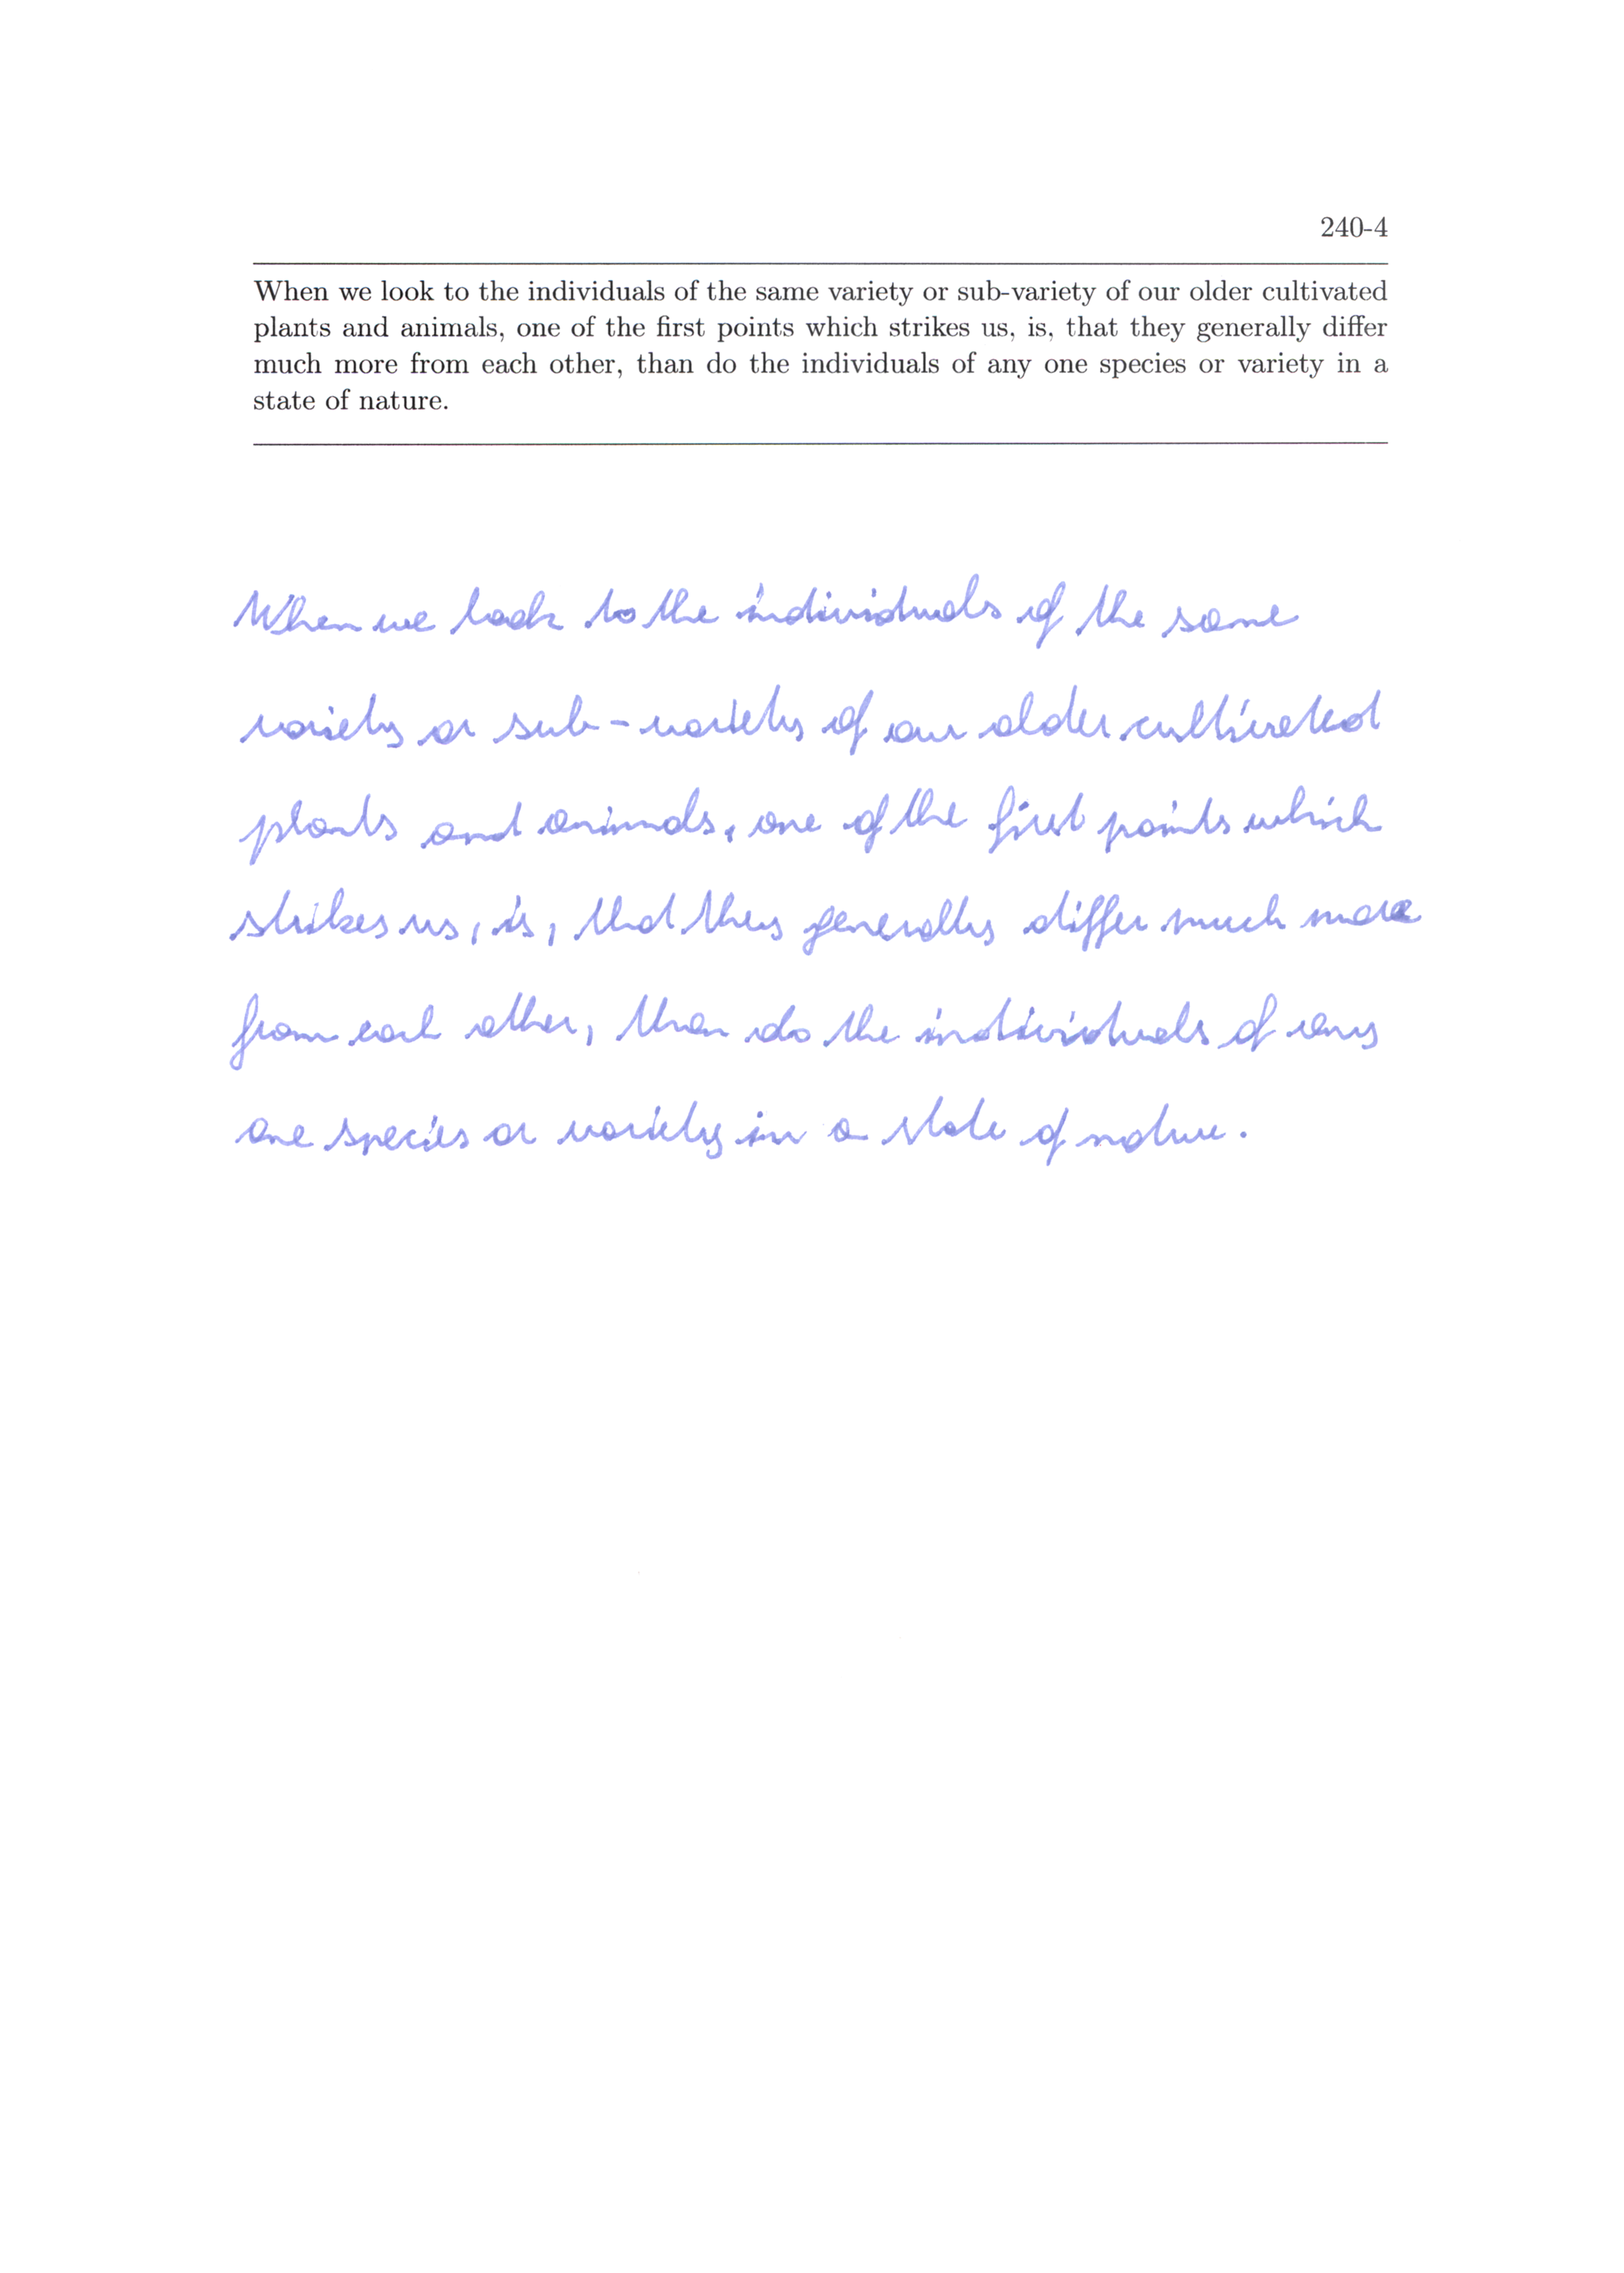 240-4
When we look to the individuals of the same variety or sub-variety of our older cultivated
plants and animals, one of the first points which strikes us, is, that they generally differ
much more from each other, than do the individuals of any one species or variety in a
state of nature.
When we look to the individuals of the same
variety or sub-variety of our older cultivated
plants and animals, one of the first points which
strikes us, is, that they generally differ much more
from each other, than do the individuals of any
one species or variety in a state of nature.